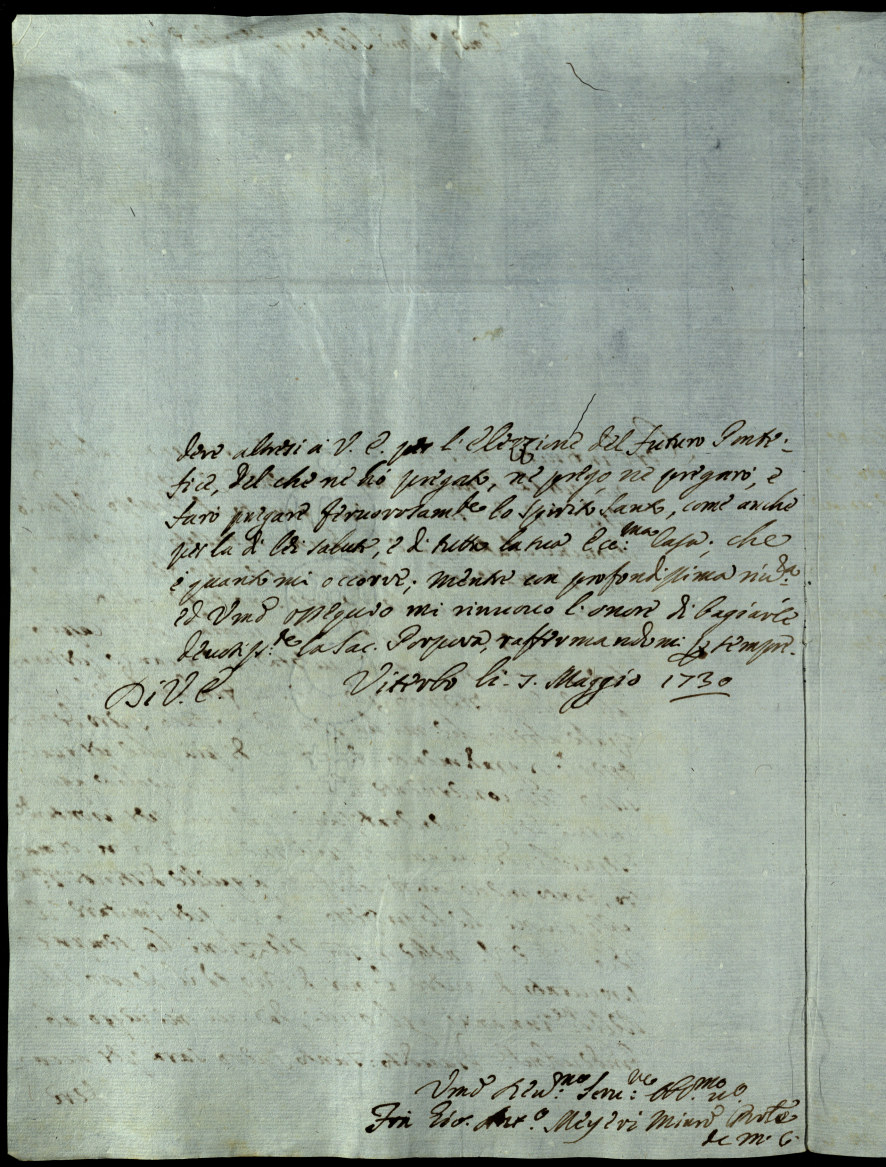 dere altresi à V. E. per l'Elezzione del Futuro Ponte-
fice, del che ne hò pregato, ne prego, ne pregarò, e
farò pregare feruorosam.te lo Spirito Santo, come anche
per la di Lei salute, e di tutta la sua Ecc.ma Casa; che
è quanto mi occorre; mentre con profondissima riu.za
ed Um.e ossequio mi rinuouo l'onore di bagiarle
deuotiss.te la Sac. Porpora, raffermandomi p sempre
Di V. E.
Viterbo li 7. Maggio 1730
Um.o Deu.mo Seru.re Obb.mo
Frà Ant.o Minore
de M. C.